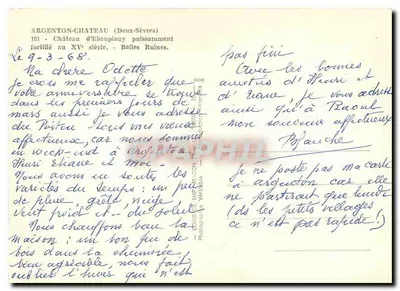 ARGENTON-CHATEAU (Deux-Sèvres)
101 - Château d'Ebaupinay puissamment
fortifié au XVe siècle. - Belles Ruines.
Le 9-3-68
Ma chère Odette
je crois me rappeler que
votre anniversaire se trouve
dans les premiers jours de
mars aussi je vous adresse
du Poitou tous nos vœux
affectueux, car nous sommes
en week-end à argenton
Henri Eliane et moi -
Nous avons eu toutes les
variétés du temps : un peu
de pluie, grêle, neige,
vent froid et - du soleil
Nous chauffons bien la
maison ; un bon feu de
bois dans la cheminée,
bien agréable, nous fait
oublier l'hiver qui n'est
pas fini
Avec les bonnes
amitiés d'Henri et
d'Eliane, je vous adresse
ainsi qu'à Raoul
mon souvenir affectueux
Blanche
Je ne poste pas ma carte
à argenton car elle
ne partirait que lundi
(ds les petits villages
ce n'est pas rapide !)
DELCAMPE